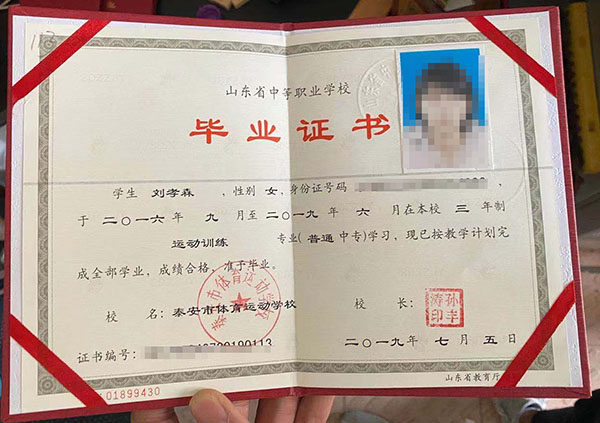 山东省中等职业学校
毕业证书
学生 刘孝森 ,性别 女,身份证号码
于 二〇一六年 九 月至二〇一九年 六 月在本校 三 年制
运动训练 专业(普通 中专)学习,现已按教学计划完
成全部学业,成绩合格,准于毕业。
校 名:泰安市体育运动学校 校 长:
泰安市体育运动学校
孙丰涛印
证书编号: 二〇一九年 七月 五日
山东省教育厅
01899430